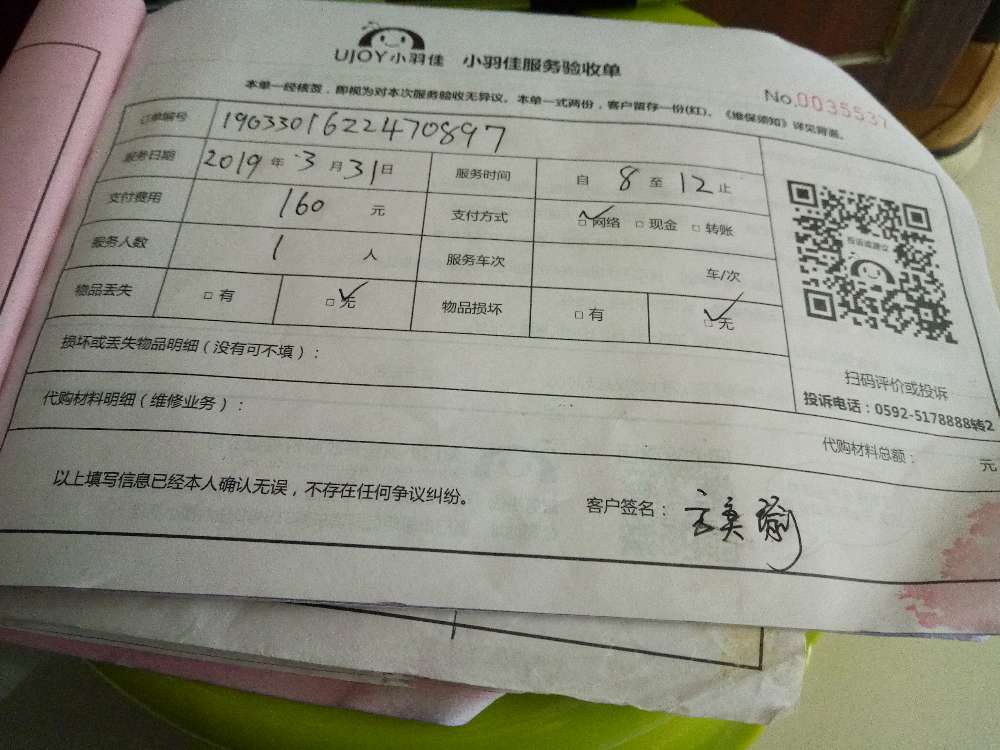 UJOY小羽佳 小羽佳服务验收单
本单一经核签，即视为对本次服务验收无异议。本单一式两份，客户留存一份(红)，《维保须知》详见背面。
No.0035537
订单编号 1903301622470897
服务日期 2019年3月31日 服务时间 自8至12止
支付费用 160元 支付方式 □网络 □现金 □转账
服务人数 1人 服务车次 车/次
物品丢失 □有 □无 物品损坏 □有 □无
投诉或建议
损坏或丢失物品明细（没有可不填）：
扫码评价或投诉
投诉电话：0592-5178888转2
代购材料明细（维修业务）：
代购材料总额： 元
以上填写信息已经本人确认无误，不存在任何争议纠纷。
客户签名：